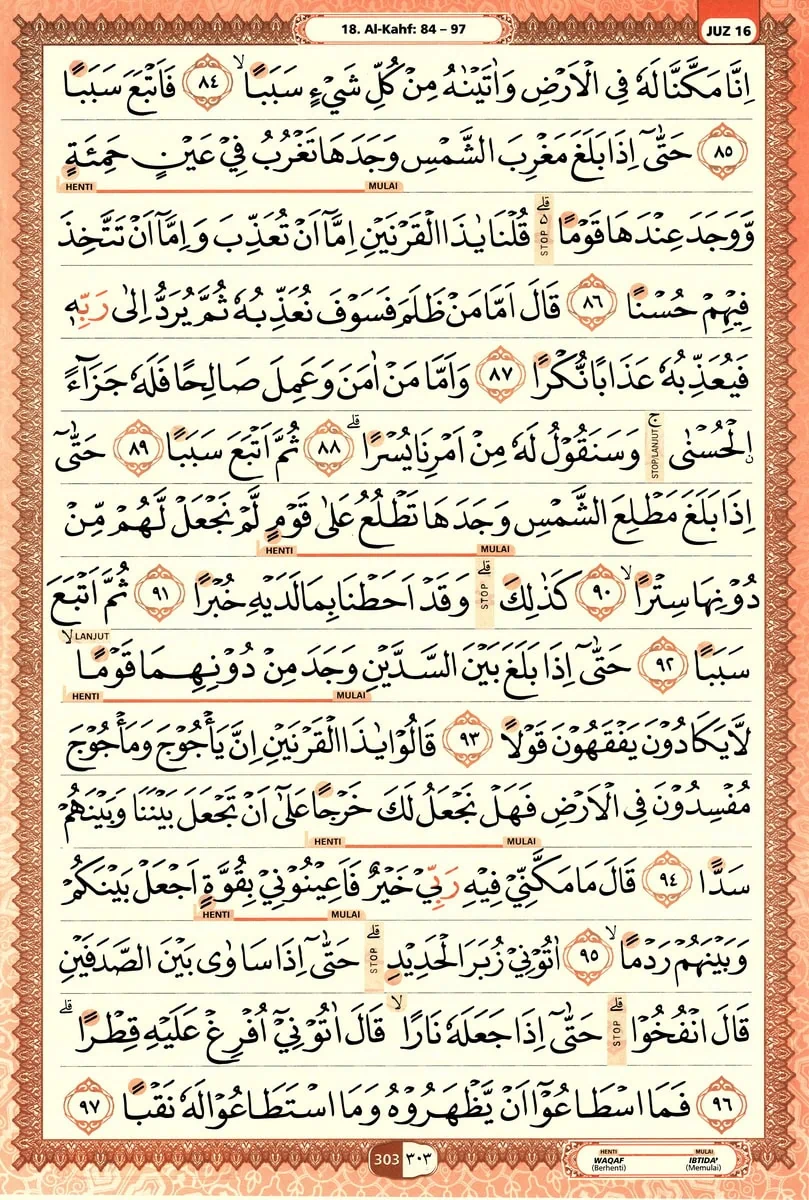 18. Al-Kahf: 84 – 97
JUZ 16
اِنَّا مَكَّنَّا لَهٗ فِى الْاَرْضِ وَاٰتَيْنٰهُ مِنْ كُلِّ شَيْءٍ سَبَبًا ۙ ٨٤ فَاَتْبَعَ سَبَبًا
٨٥ حَتّٰىٓ اِذَا بَلَغَ مَغْرِبَ الشَّمْسِ وَجَدَهَا تَغْرُبُ فِيْ عَيْنٍ حَمِئَةٍ
MULAI HENTI
وَّوَجَدَ عِنْدَهَا قَوْمًا ەۗ STOP قُلْنَا يٰذَا الْقَرْنَيْنِ اِمَّآ اَنْ تُعَذِّبَ وَاِمَّآ اَنْ تَتَّخِذَ
فِيْهِمْ حُسْنًا ٨٦ قَالَ اَمَّا مَنْ ظَلَمَ فَسَوْفَ نُعَذِّبُهٗ ثُمَّ يُرَدُّ اِلٰى رَبِّهٖ
فَيُعَذِّبُهٗ عَذَابًا نُّكْرًا ٨٧ وَاَمَّا مَنْ اٰمَنَ وَعَمِلَ صَالِحًا فَلَهٗ جَزَاۤءً
ۨالْحُسْنٰى ۚ STOP/LANJUT وَسَنَقُوْلُ لَهٗ مِنْ اَمْرِنَا يُسْرًا ۗ ٨٨ ثُمَّ اَتْبَعَ سَبَبًا ٨٩ حَتّٰىٓ
اِذَا بَلَغَ مَطْلِعَ الشَّمْسِ وَجَدَهَا تَطْلُعُ عَلٰى قَوْمٍ لَّمْ نَجْعَلْ لَّهُمْ مِّنْ
MULAI HENTI
دُوْنِهَا سِتْرًا ۙ ٩٠ كَذٰلِكَ ۗ STOP وَقَدْ اَحَطْنَا بِمَا لَدَيْهِ خُبْرًا ٩١ ثُمَّ اَتْبَعَ
سَبَبًا ٩٢ حَتّٰىٓ اِذَا بَلَغَ بَيْنَ السَّدَّيْنِ وَجَدَ مِنْ دُوْنِهِمَا قَوْمًا ۙ LANJUT
MULAI HENTI
لَّا يَكَادُوْنَ يَفْقَهُوْنَ قَوْلًا ٩٣ قَالُوْا يٰذَا الْقَرْنَيْنِ اِنَّ يَأْجُوْجَ وَمَأْجُوْجَ
مُفْسِدُوْنَ فِى الْاَرْضِ فَهَلْ نَجْعَلُ لَكَ خَرْجًا عَلٰٓى اَنْ تَجْعَلَ بَيْنَنَا وَبَيْنَهُمْ
MULAI HENTI
سَدًّا ٩٤ قَالَ مَا مَكَّنِّيْ فِيْهِ رَبِّيْ خَيْرٌ فَاَعِيْنُوْنِيْ بِقُوَّةٍ اَجْعَلْ بَيْنَكُمْ
MULAI HENTI
وَبَيْنَهُمْ رَدْمًا ۙ ٩٥ اٰتُوْنِيْ زُبَرَ الْحَدِيْدِ ۗ STOP حَتّٰىٓ اِذَا سَاوٰى بَيْنَ الصَّدَفَيْنِ
قَالَ انْفُخُوْا ۗ STOP حَتّٰىٓ اِذَا جَعَلَهٗ نَارًا ۙ قَالَ اٰتُوْنِيْٓ اُفْرِغْ عَلَيْهِ قِطْرًا ۗ
٩٦ فَمَا اسْطَاعُوْٓا اَنْ يَّظْهَرُوْهُ وَمَا اسْتَطَاعُوْا لَهٗ نَقْبًا ٩٧
303 ٣٠٣
HENTI MULAI
WAQAF IBTIDA'
(Berhenti) (Memulai)